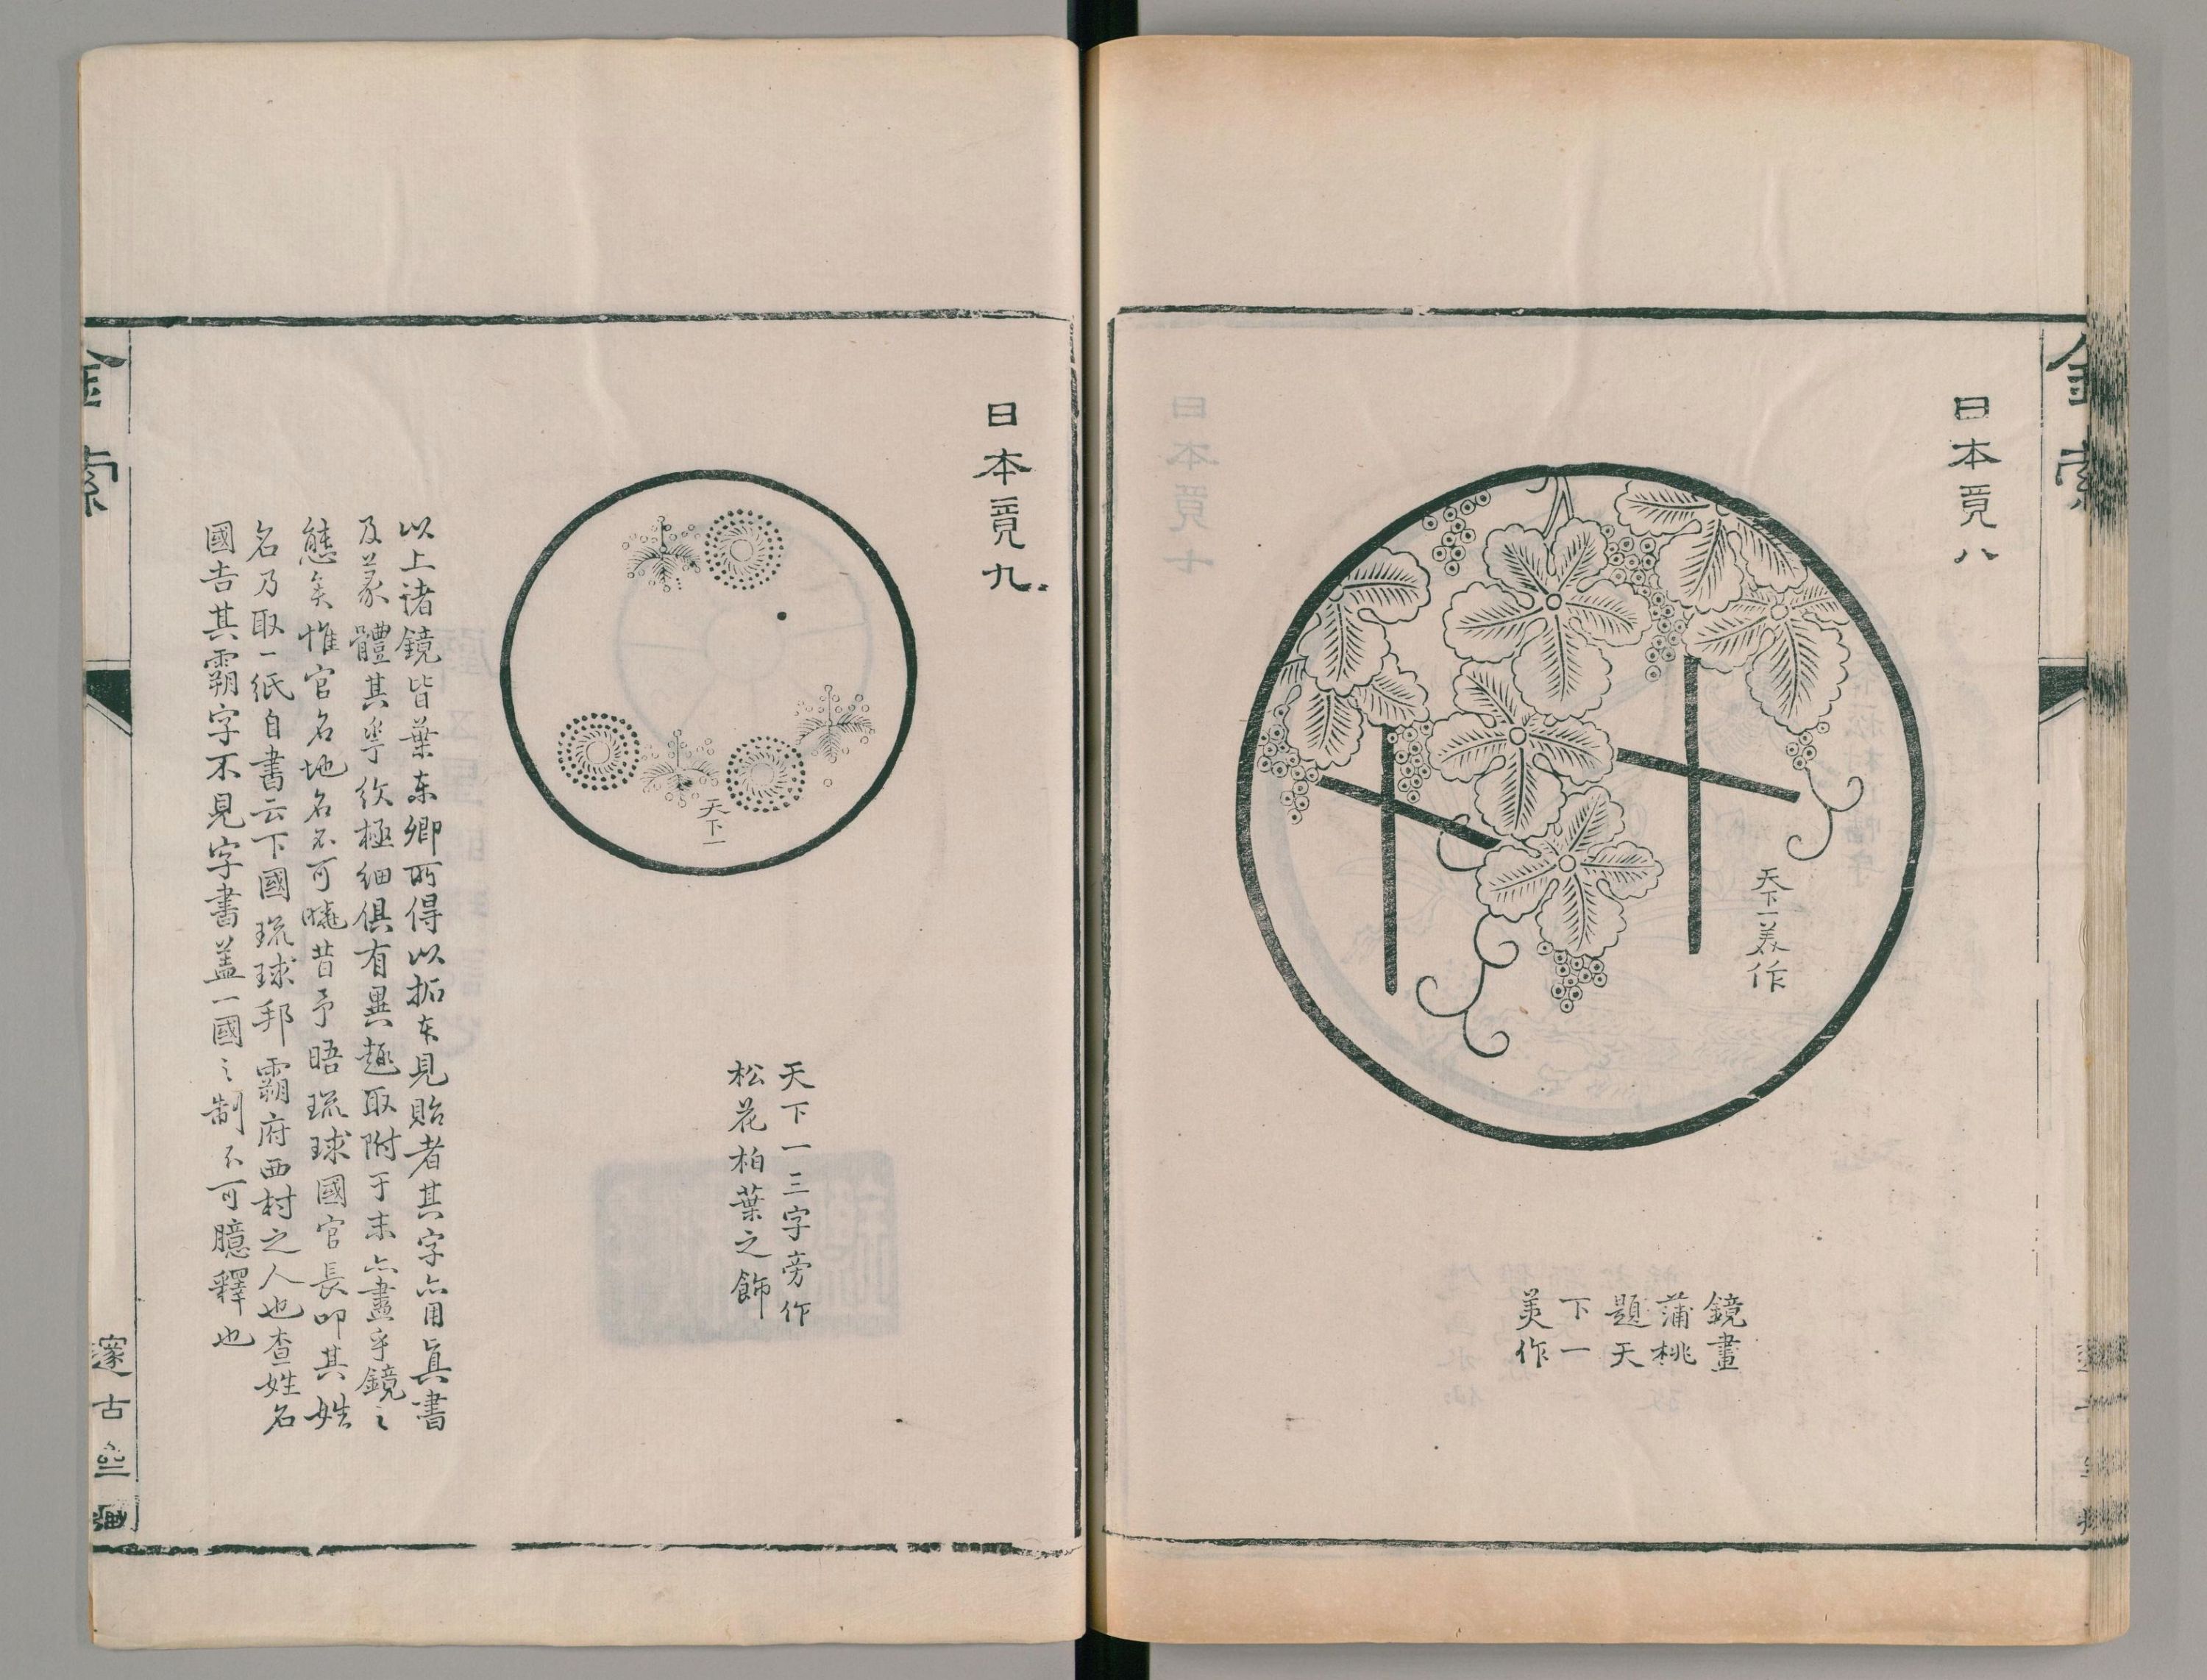 金索
日本竟八
天下一美作
鏡畫
蒲桃
題天
下一
美作
日本竟九
天下一
天下一三字旁作
松花柏葉之飾
以上诸鏡皆葉东卿所得以拓夲見貽者其字亦用眞書
及篆體其華紋極細俱有異趣取附于末亦盡乎鏡之
態矣惟官名地名不可曉昔予晤琉球國官長叩其姓
名乃取一紙自書云下國琉球邦霸府西村之人也查姓名
國吉其霸字不見字書蓋一國之制不可臆釋也
金索
邃古